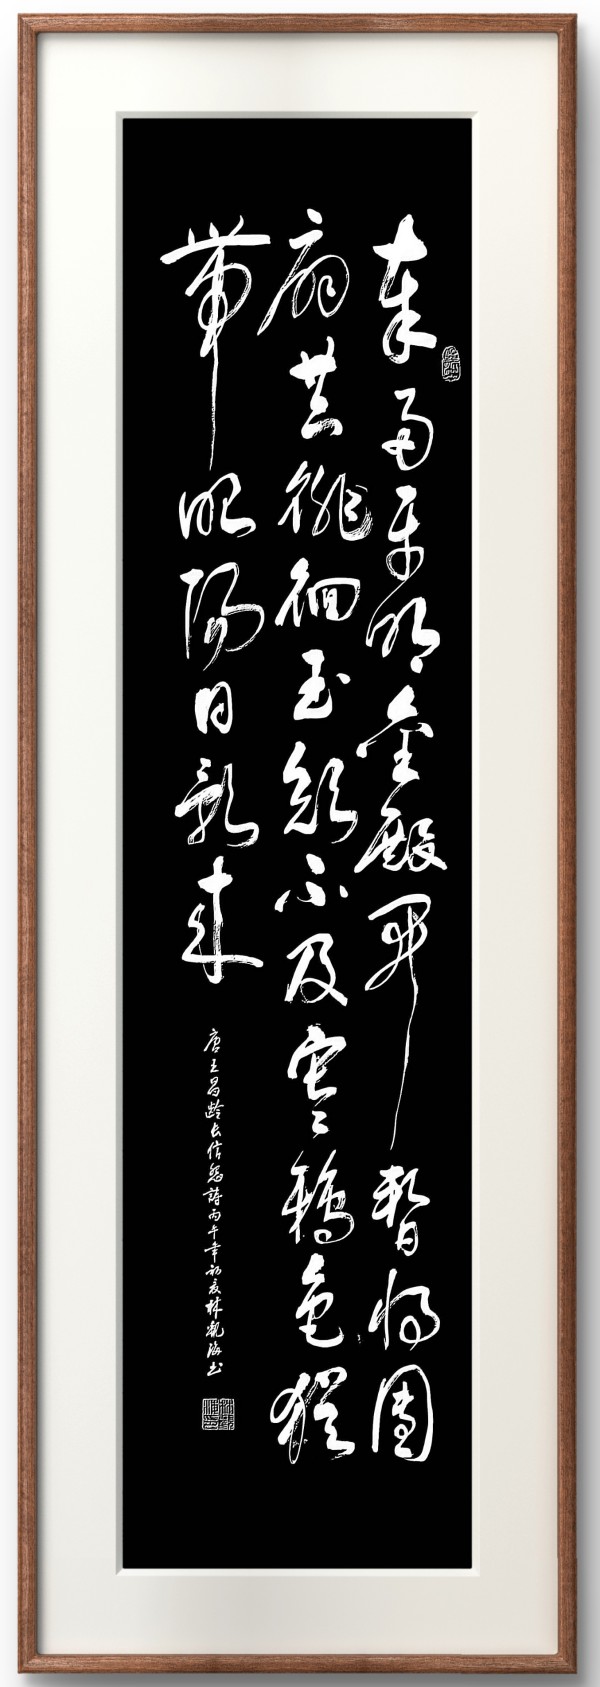 奉帚平明金殿开暂将团
扇共徘徊玉颜不及寒鸦色犹
带昭阳日影来
唐王昌龄长信怨诗丙午年初夏林凯海书